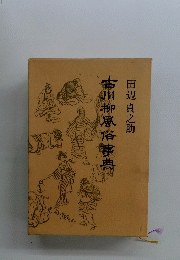 古川柳風俗事典
田辺貞之助